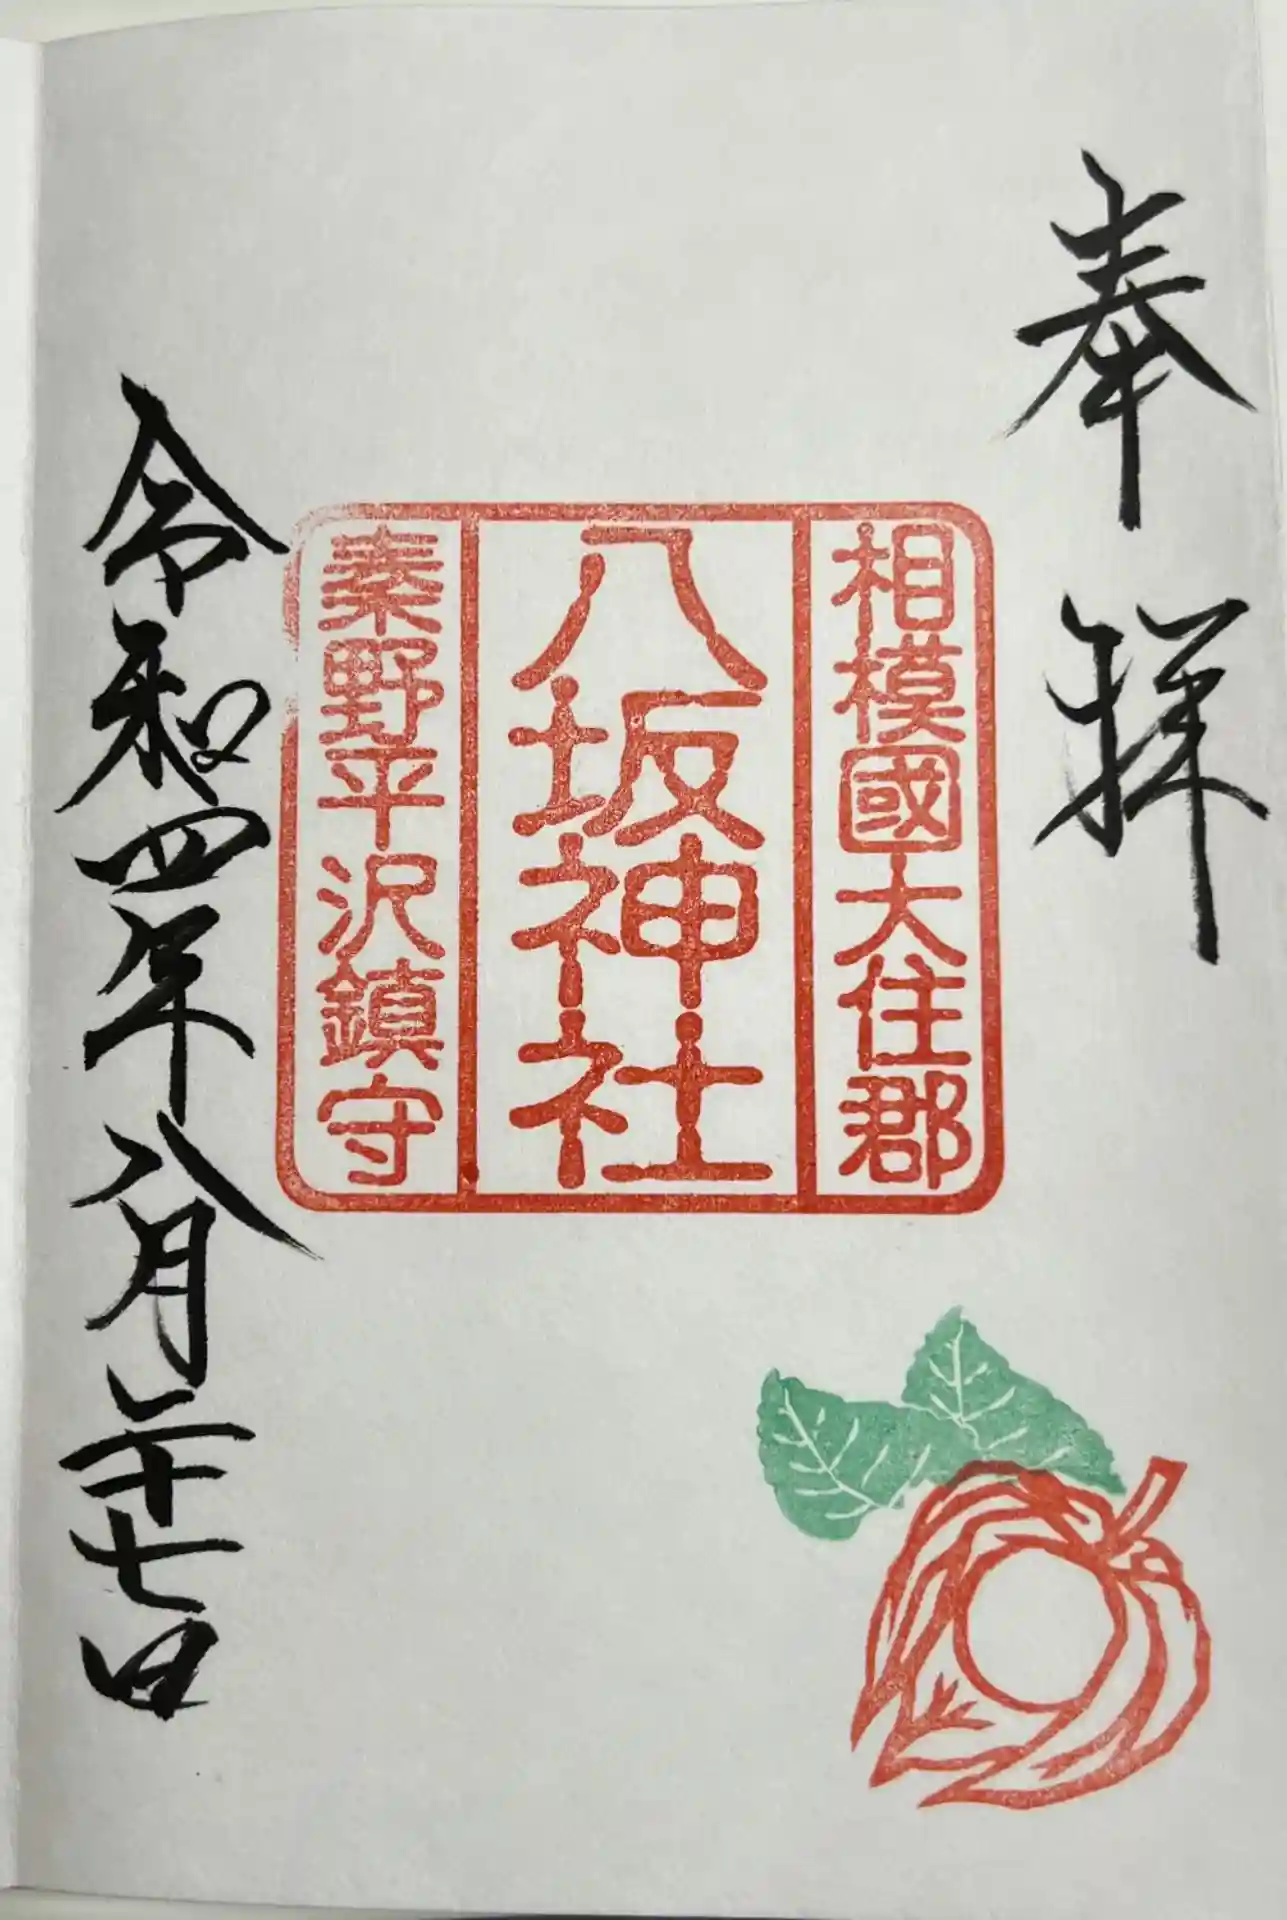 奉拝
相模國大住郡
八坂神社
秦野平沢鎮守
令和四年八月二十七日